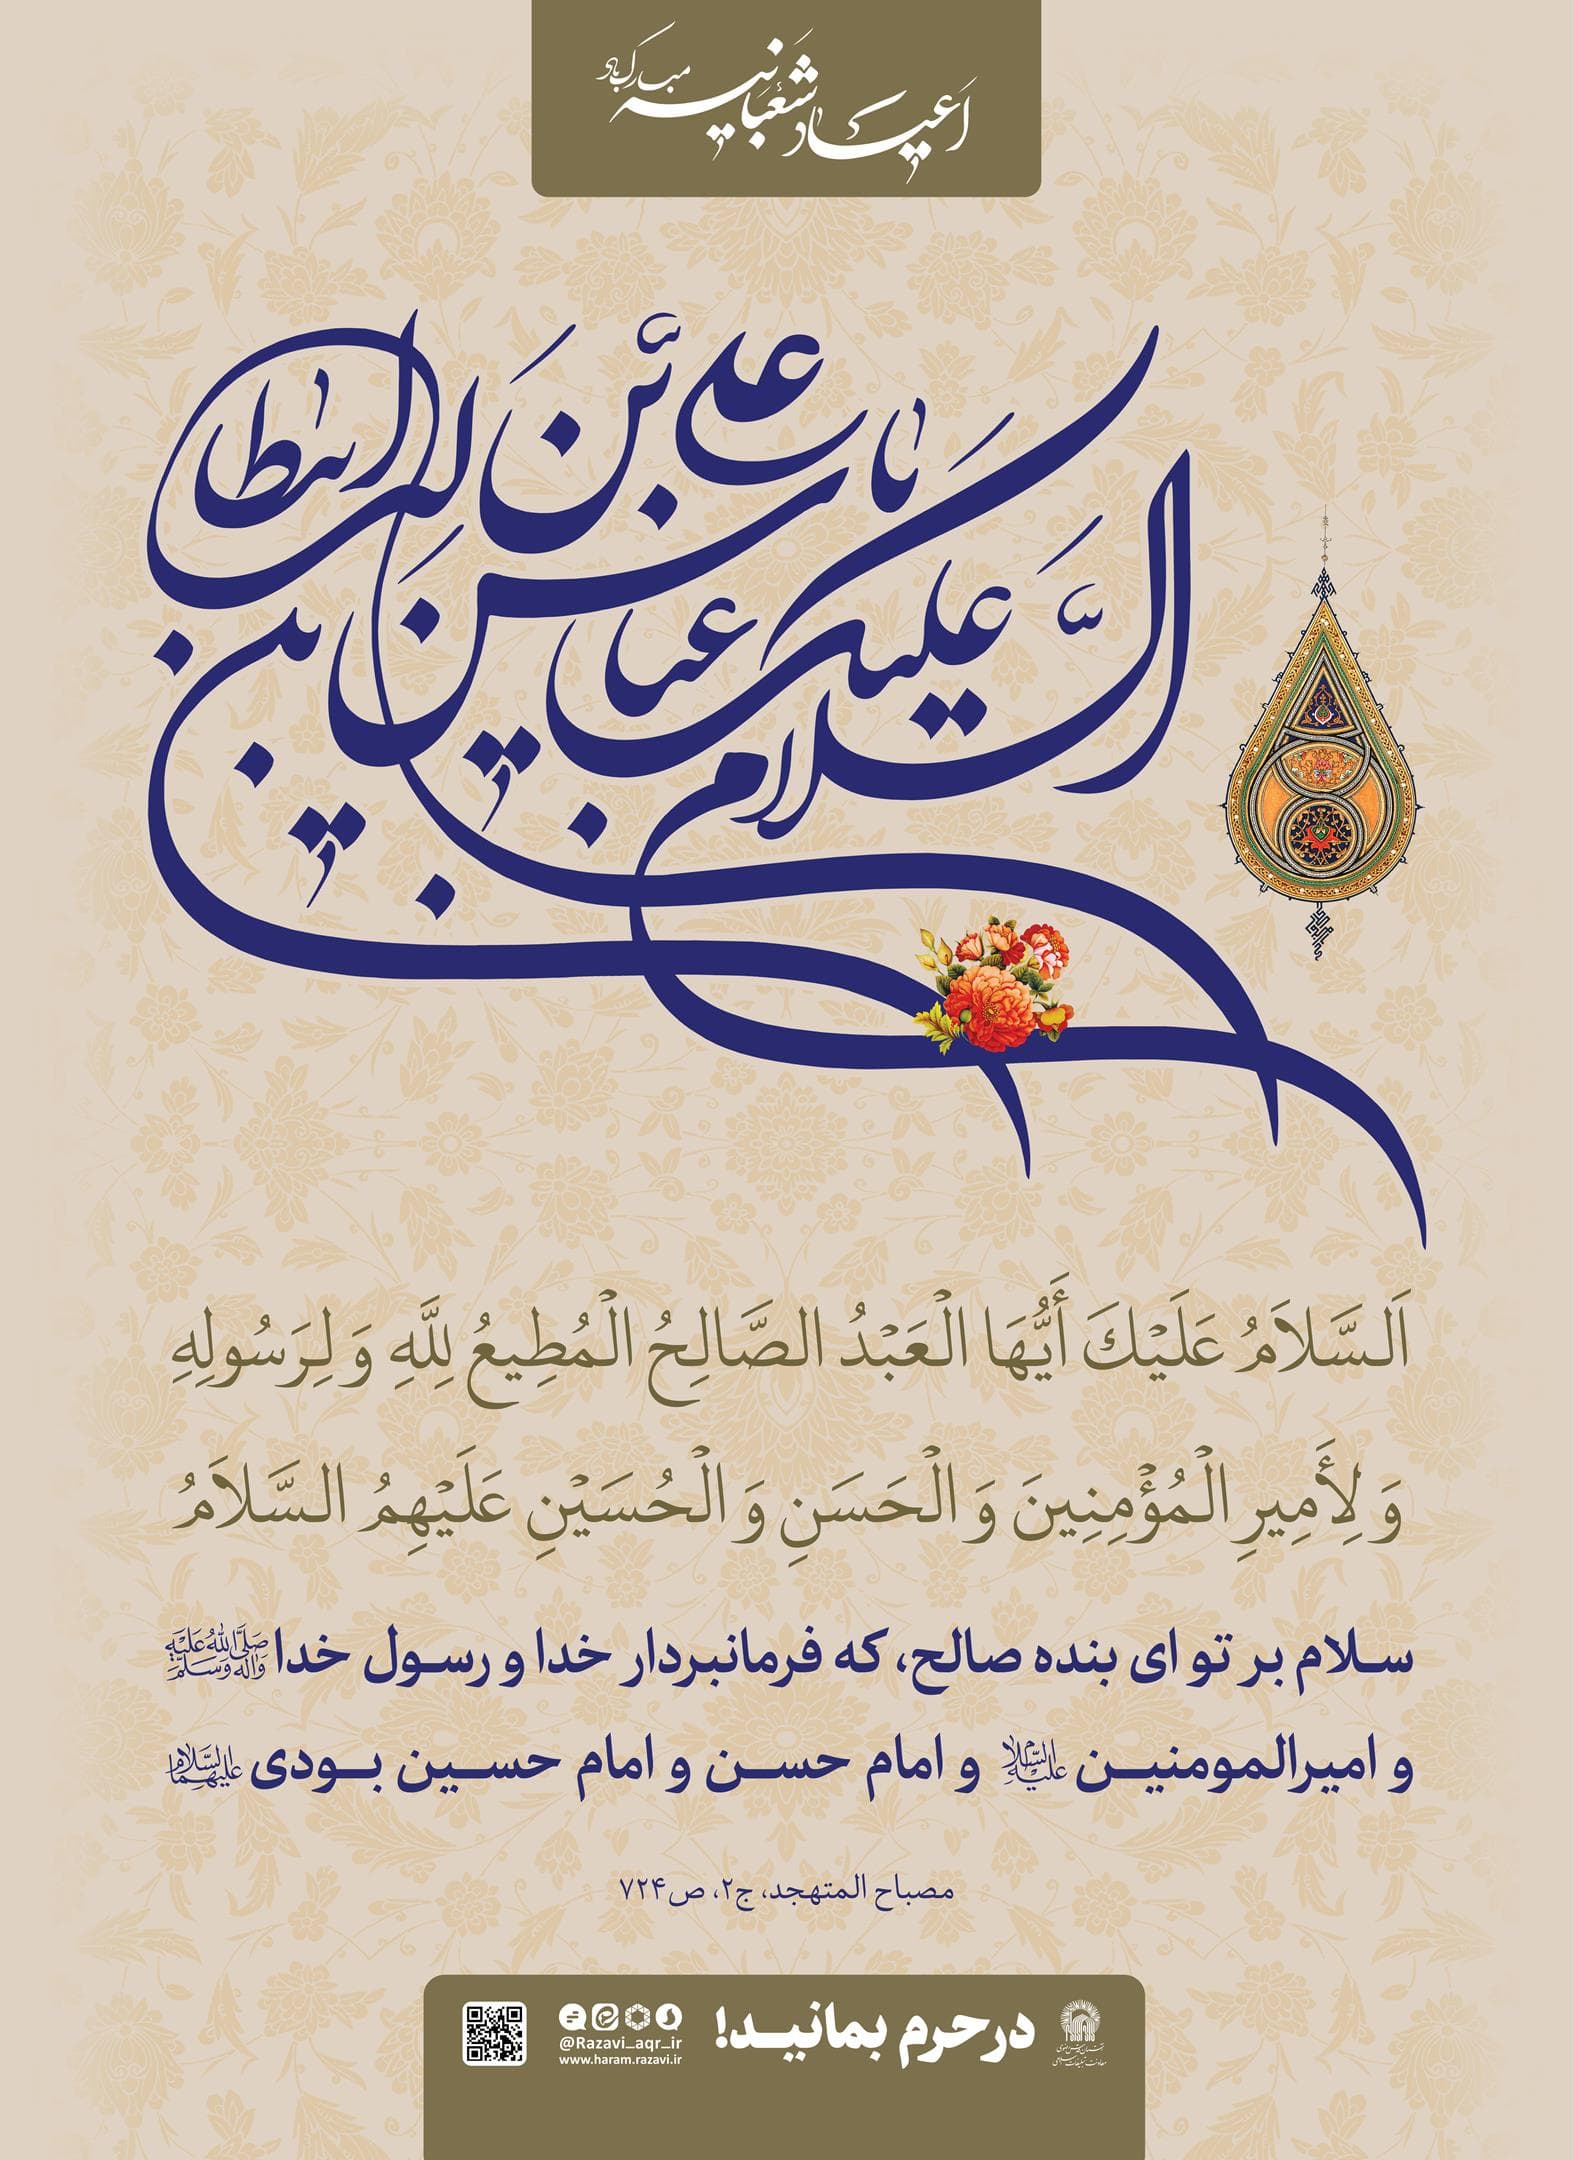 اعیاد شعبانیه مبارک باد
السلام علیک یا عباس بن علی بن ابیطالب
اَلسَّلاَمُ عَلَيْكَ أَيُّهَا الْعَبْدُ الصَّالِحُ الْمُطِيعُ لِلَّهِ وَ لِرَسُولِهِ
وَ لِأَمِيرِ الْمُؤْمِنِينَ وَ الْحَسَنِ وَ الْحُسَيْنِ عَلَيْهِمُ السَّلاَمُ
سلام بر تو ای بنده صالح، که فرمانبردار خدا و رسول خدا صَلَّى اللهُ عَلَيْهِ وَآلِهِ وَسَلَّمَ
و امیرالمومنین علیه السلام و امام حسن و امام حسین بودی علیهما السلام
مصباح المتهجد، ج۲، ص۷۲۴
در حرم بمانید!
@Razavi_aqr_ir
www.haram.razavi.ir
آستان قدس رضوی
معاونت تبلیغات اسلامی